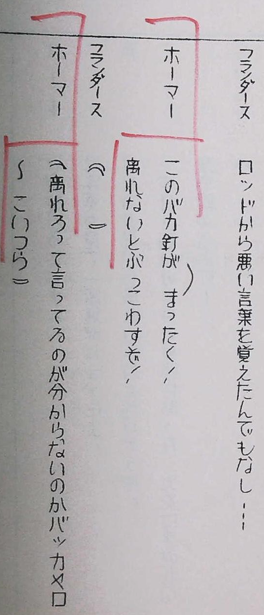 フランダース　ロッドから悪い言葉を覚えたんでもなし…
ホーマー　このバカ釘が　まったく！
離れないとぶっこわすぞ！
フランダース　（　）
ホーマー　（離れろって言ってるのが分からないのかバッカヤロ
～こいつら）